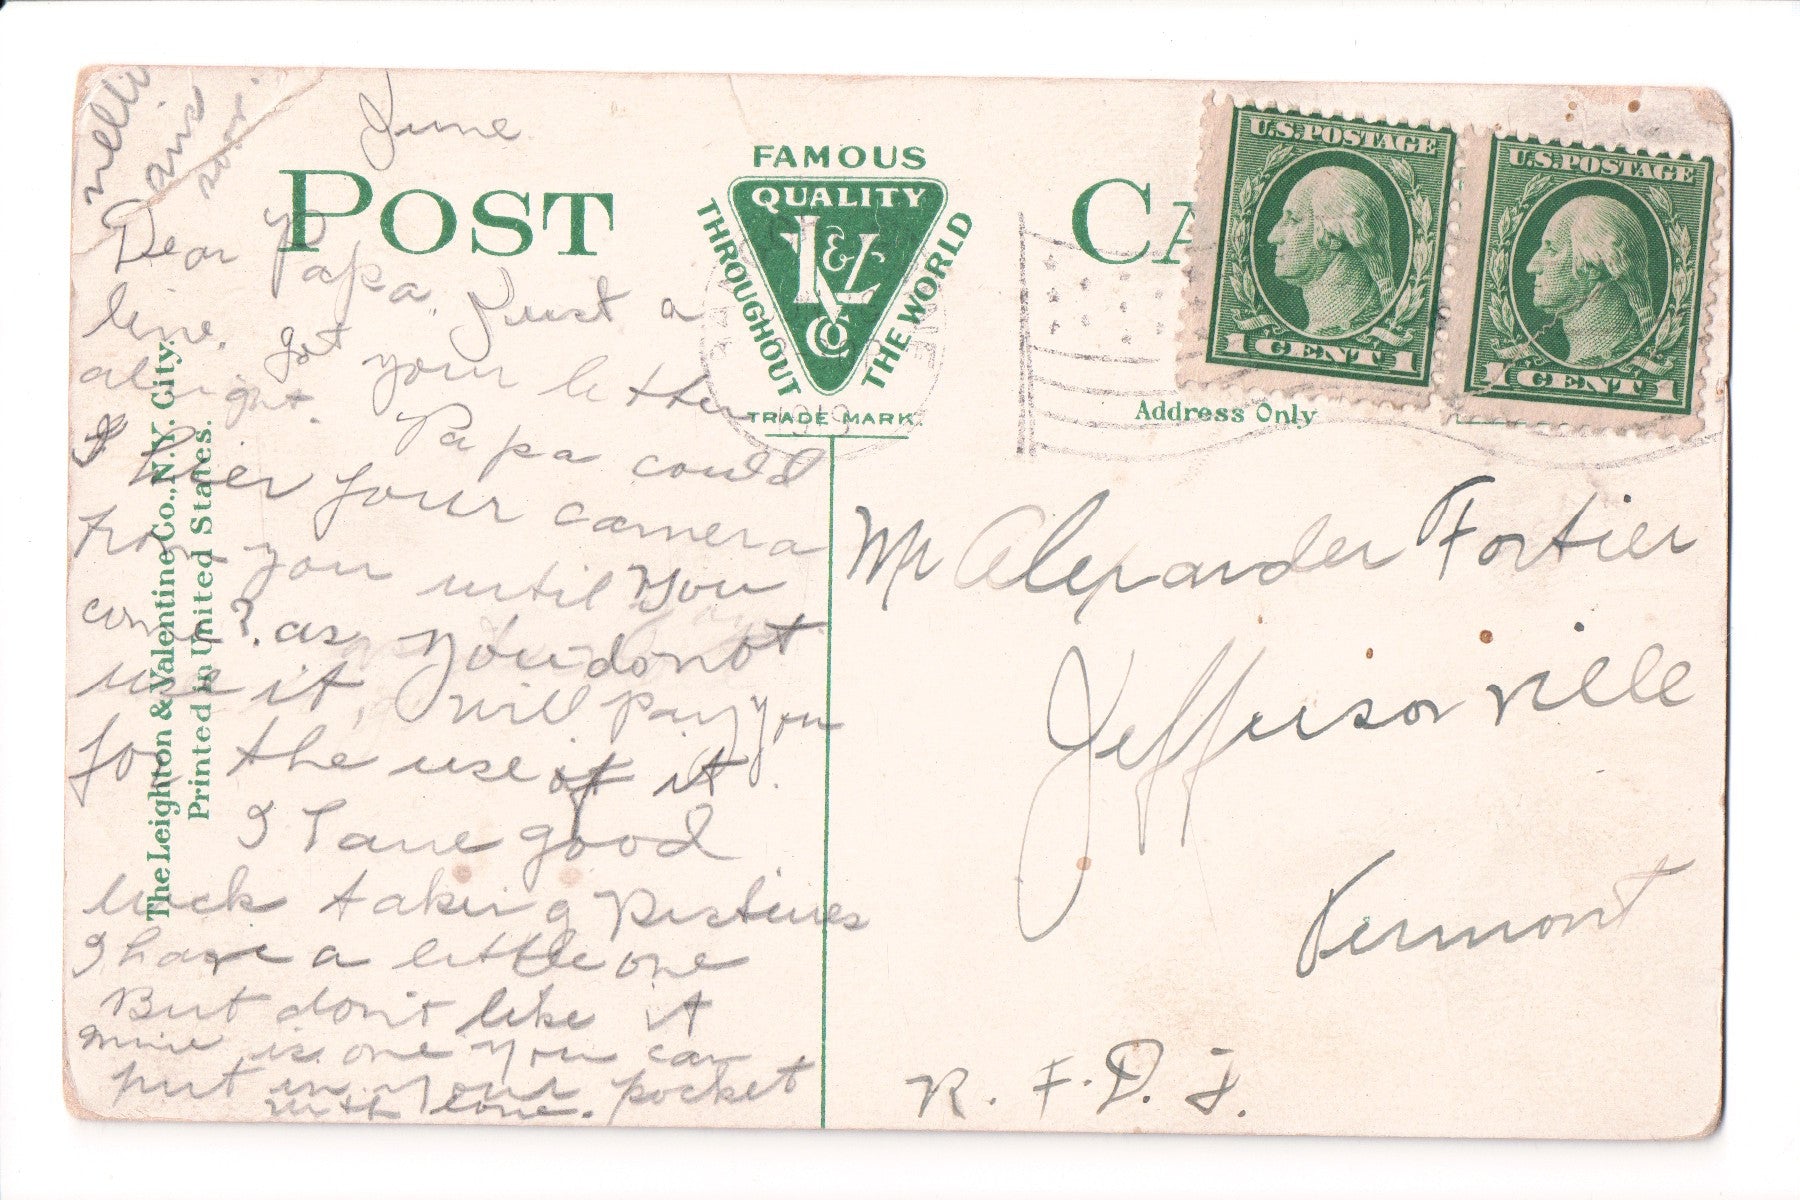 June
POST CA
FAMOUS
QUALITY
L&V
Co
THROUGHOUT
THE WORLD
TRADE MARK
U.S. POSTAGE
1 CENT 1
U.S. POSTAGE
1 CENT 1
Address Only
The Leighton & Valentine Co., N.Y. City.
Printed in United States.
Dear Papa Just a
line. got your letter
alright. Papa could
I hier your camera
from you until you
come? as you do not
use it, will pay you
for the use of it.
I have good
luck taking pictures
I have a little one
But don't like it
mine is one you can
put in your pocket
with love.
Nellie
soon.
Mr Alexander Fortier
Jeffersonville
Vermont
R. F. D. 1.